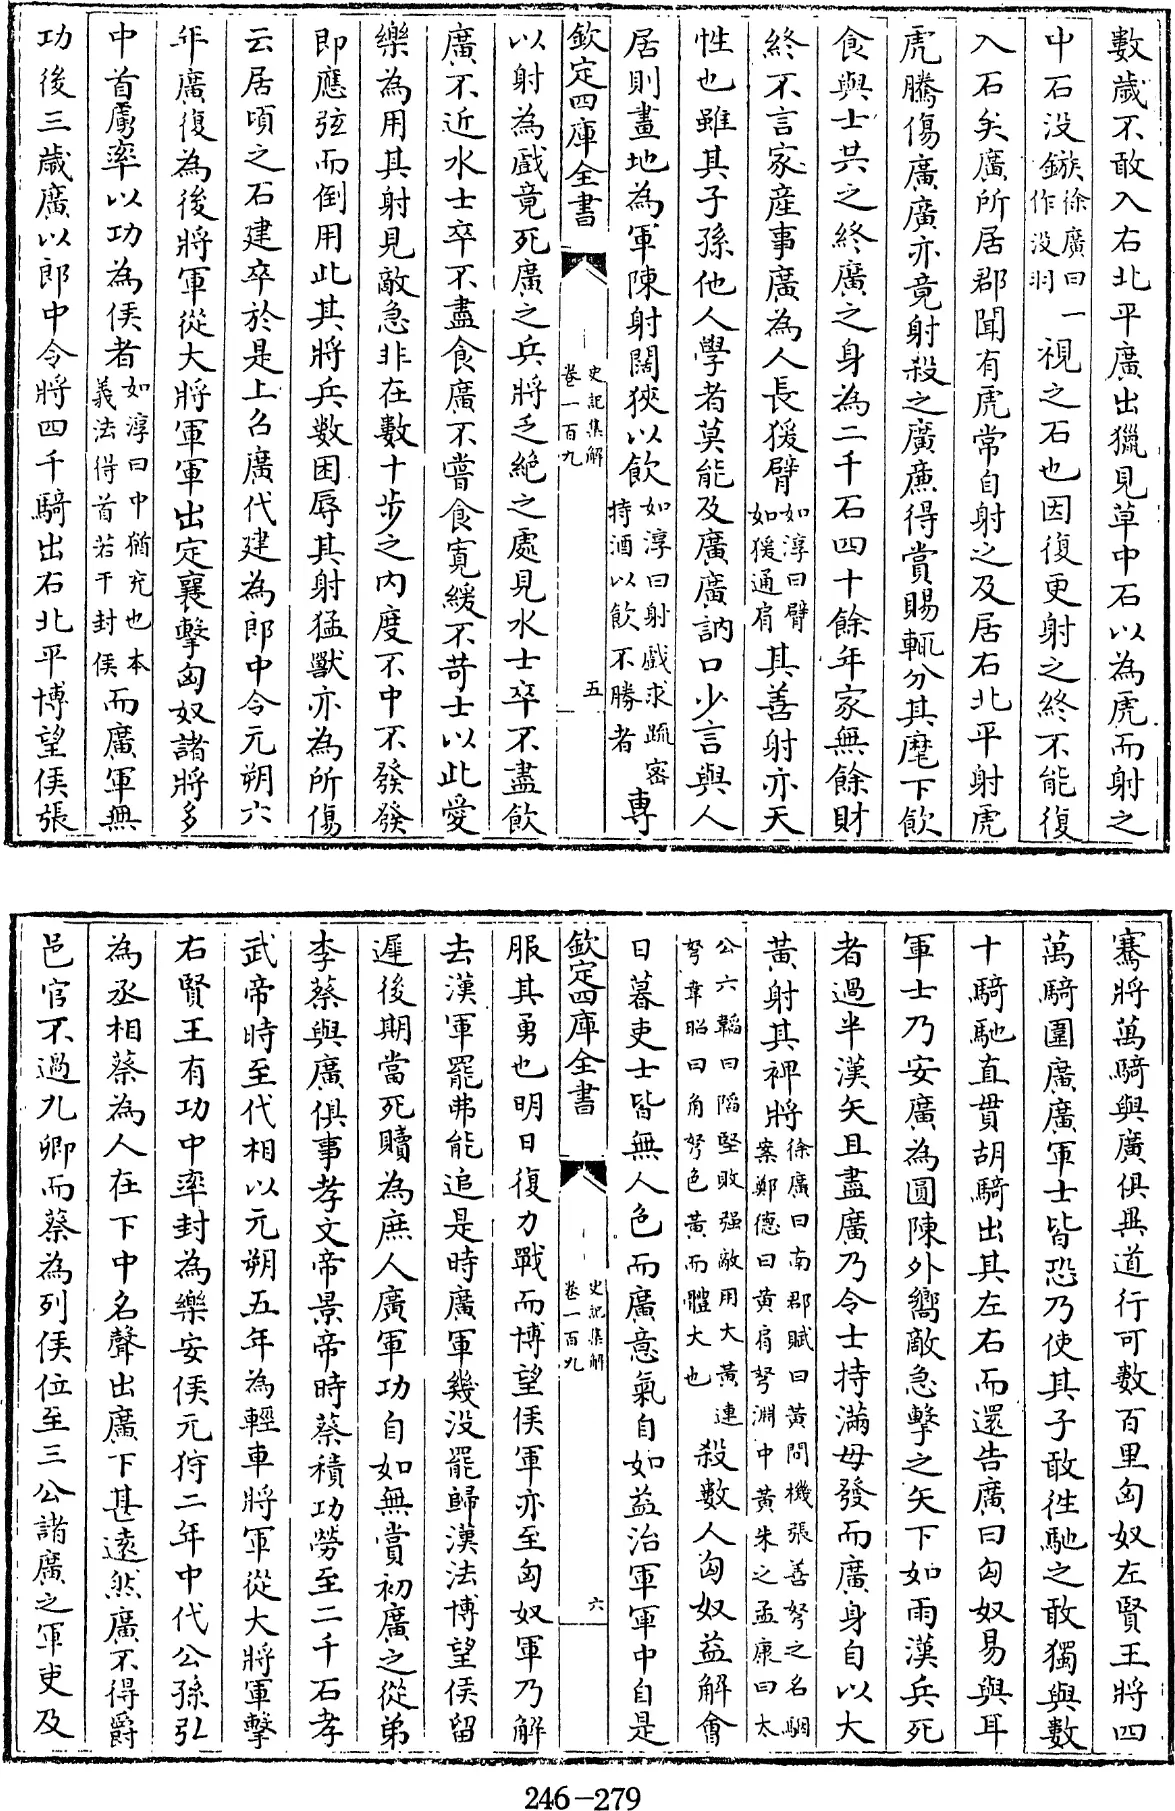 數歲不敢入右北平廣出獵見草中石以為虎而射之
中石沒鏃徐廣曰一作沒羽視之石也因復更射之終不能復
入石矣廣所居郡聞有虎常自射之及居右北平射虎
虎騰傷廣廣亦竟射殺之廣廉得賞賜輒分其麾下飲
食與士共之終廣之身為二千石四十餘年家無餘財
終不言家産事廣為人長猨臂如淳曰臂如猨通肩其善射亦天
性也雖其子孫他人學者莫能及廣廣訥口少言與人
居則畫地為軍陳射闊狹以飲如淳曰射戲求疏密持酒以飲不勝者專
欽定四庫全書 史記集解 卷一百九 五
以射為戲竟死廣之兵將乏絶之處見水士卒不盡飲
廣不近水士卒不盡食廣不嘗食寛緩不苛士以此愛
樂為用其射見敵急非在數十步之内度不中不發發
即應弦而倒用此其將兵數困辱其射猛獸亦為所傷
云居頃之石建卒於是上召廣代建為郎中令元朔六
年廣復為後將軍從大將軍軍出定襄擊匈奴諸將多
中首虜率以功為侯者如淳曰中猶充也本義法得首若干封侯而廣軍無
功後三歲廣以郎中令將四千騎出右北平博望侯張
騫將萬騎與廣俱異道行可數百里匈奴左賢王將四
萬騎圍廣廣軍士皆恐乃使其子敢徃馳之敢獨與數
十騎馳直貫胡騎出其左右而還告廣曰匈奴易與耳
軍士乃安廣為圓陳外嚮敵急擊之矢下如雨漢兵死
者過半漢矢且盡廣乃令士持滿毋發而廣身自以大
黃射其裨將徐廣曰南郡賦曰黃問機張善弩之名駰案鄭德曰黃肩弩淵中黃朱之孟康曰太
公六韜曰陷堅敗强敵用大黃連弩韋昭曰角弩色黃而體大也殺數人匈奴益解會
日暮吏士皆無人色而廣意氣自如益治軍軍中自是
欽定四庫全書 史記集解 卷一百九 六
服其勇也明日復力戰而博望侯軍亦至匈奴軍乃解
去漢軍罷弗能追是時廣軍幾沒罷歸漢法博望侯留
遲後期當死贖為庶人廣軍功自如無賞初廣之從弟
李蔡與廣俱事孝文帝景帝時蔡積功勞至二千石孝
武帝時至代相以元朔五年為輕車將軍從大將軍擊
右賢王有功中率封為樂安侯元狩二年中代公孫弘
為丞相蔡為人在下中名聲出廣下甚遠然廣不得爵
邑官不過九卿而蔡為列侯位至三公諸廣之軍吏及
246-279